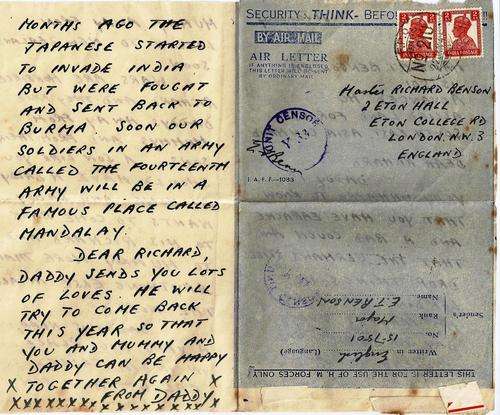 MONTHS AGO THE
JAPANESE STARTED
TO INVADE INDIA
BUT WERE FOUGAT
AND SENT BACK TO
BURMA. SOON OUR
SOLDIERS IN AN ARMY
CALLED THE FOURTEENTH
ARMY WILL BE IN A
FAMOUS PLACE CALLED
MANDALAY.
DEAR RICHARD,
DADDY SENDS YOU LOTS
OF LOVES. HE WILL
TRY TO COME BACK
THIS YEAR SO THAT
YOU AND MUMMY AND
DADDY CAN BE HAPPY
X TOGETHER AGAIN X
FROM DADDY
SECURITY: THINK- BEFO
BY AIR MAIL
AIR LETTER
IF ANYTHING IS ENCLOSED
THIS LETTER WILL BE SENT
BY ORDINARY MAIL.
UNIT CENSOR
Master RICHARD BENSON
2 ETON HALL
ETON COLLEGE RD
LONDON. N.W. 3
ENGLAND
I. A. F. F.—1083
THIS LETTER IS FOR THE USE OF H. M. FORCES ONLY
Written in English (Language)
No. 15-7501
Rank Major
Name E.T. RENSON
Sender's